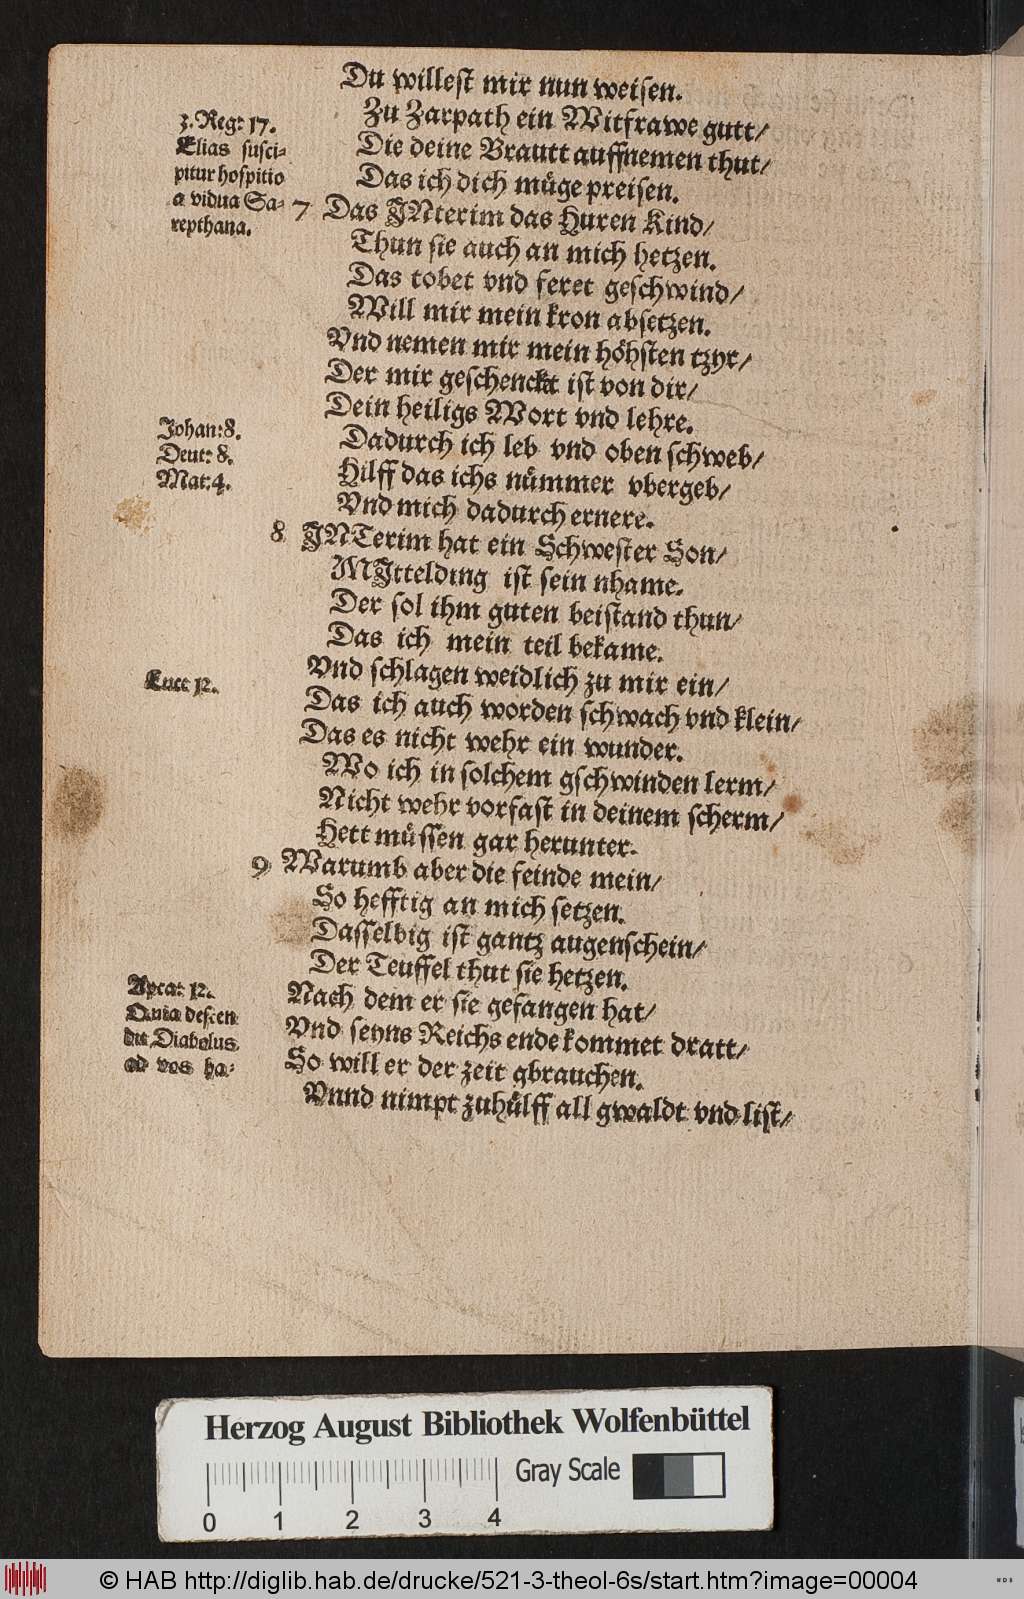 Du willest mir nun weisen.
Zu Zarpath ein Witfrawe gutt/
Die deine Brautt auffnemen thut/
Das ich dich müge preisen.
3. Reg: 17.
Elias susci-
pitur hospitio
a vidua Sa-
repthana.
7 Das INterim das Huren Kind/
Thun sie auch an mich hetzen.
Das tobet vnd feret geschwind/
Will mir mein kron absetzen.
Vnd nemen mir mein höhsten tzyr/
Der mir geschenckt ist von dir/
Dein heiligs Wort vnd lehre.
Dadurch ich leb vnd oben schweb/
Hilff das ichs nümmer vbergeb/
Vnd mich dadurch ernere.
Johan: 8.
Deut: 8.
Mat: 4.
8 INTerim hat ein Schwester Son/
MIttelding ist sein nhame.
Der sol ihm guten beistand thun/
Das ich mein teil bekame.
Vnd schlagen weidlich zu mir ein/
Das ich auch worden schwach vnd klein/
Das es nicht wehr ein wunder.
Wo ich in solchem gschwinden lerm/
Nicht wehr vorfast in deinem scherm/
Hett müssen gar herunter.
Luce 12.
9 Warumb aber die feinde mein/
So hefftig an mich setzen.
Dasselbig ist gantz augenschein/
Der Teuffel thut sie hetzen.
Nach dem er sie gefangen hat/
Vnd seyns Reichs ende kommet dratt/
So will er der zeit gbrauchen.
Vnnd nimpt zuhülff all gwaldt vnd list/
Apca: 12.
Quia descen
dit Diabolus
ad vos ha-
Herzog August Bibliothek Wolfenbüttel
Gray Scale
0 1 2 3 4
© HAB http://diglib.hab.de/drucke/521-3-theol-6s/start.htm?image=00004